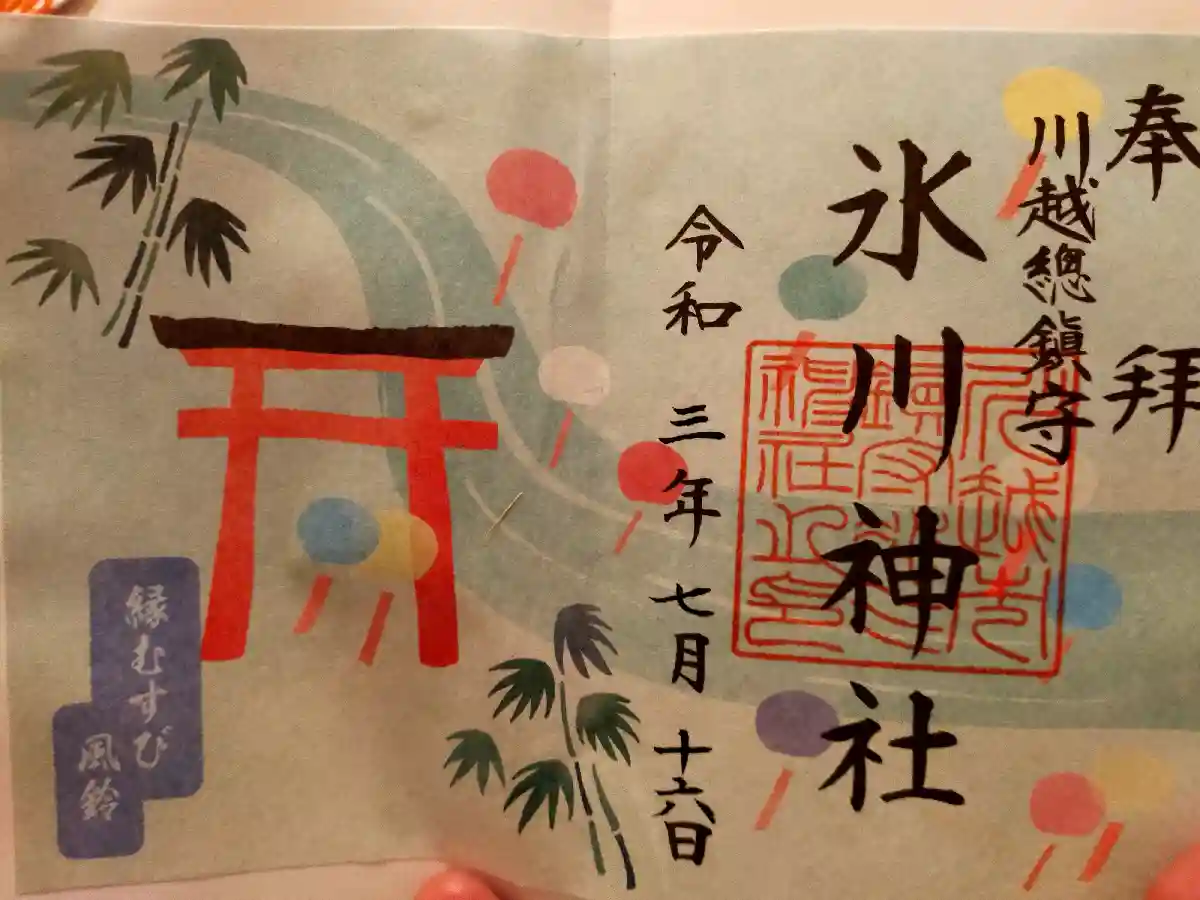 奉拝
川越總鎮守
氷川神社
令和三年七月十六日
縁むすび
風鈴